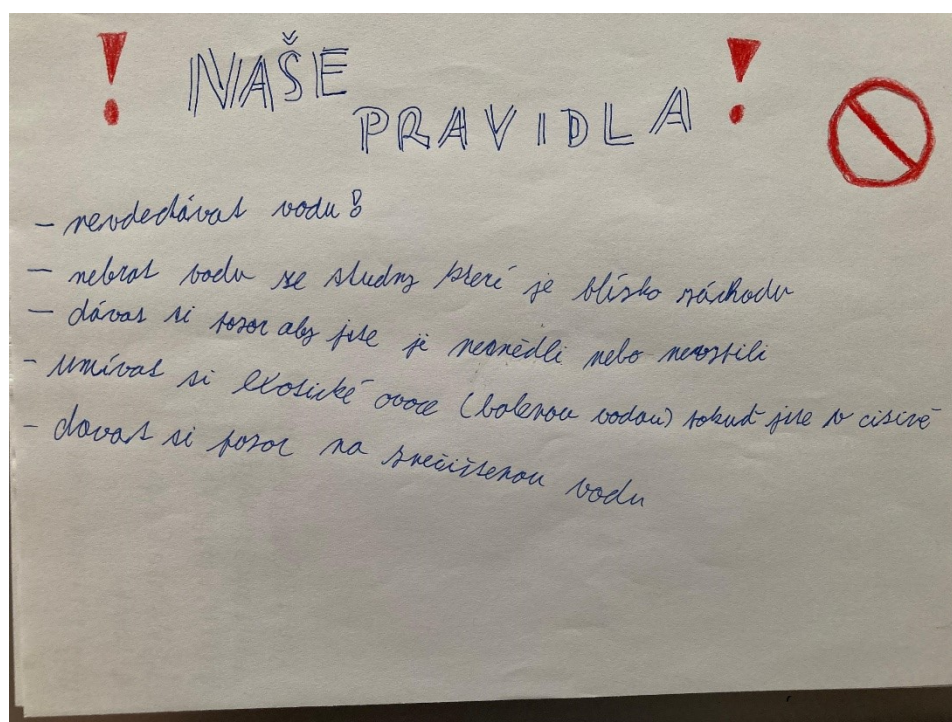 ! NAŠE
PRAVIDLA !
- vodu!
- nebrat vodu ze studny kteri je blízko záchodu
- dávat si pozor aby jste ji nesnědli nebo
- umívat si exotické ovoce (balenou vodou) pokud jste v cizině
- davat si pozor na znečištenou vodu